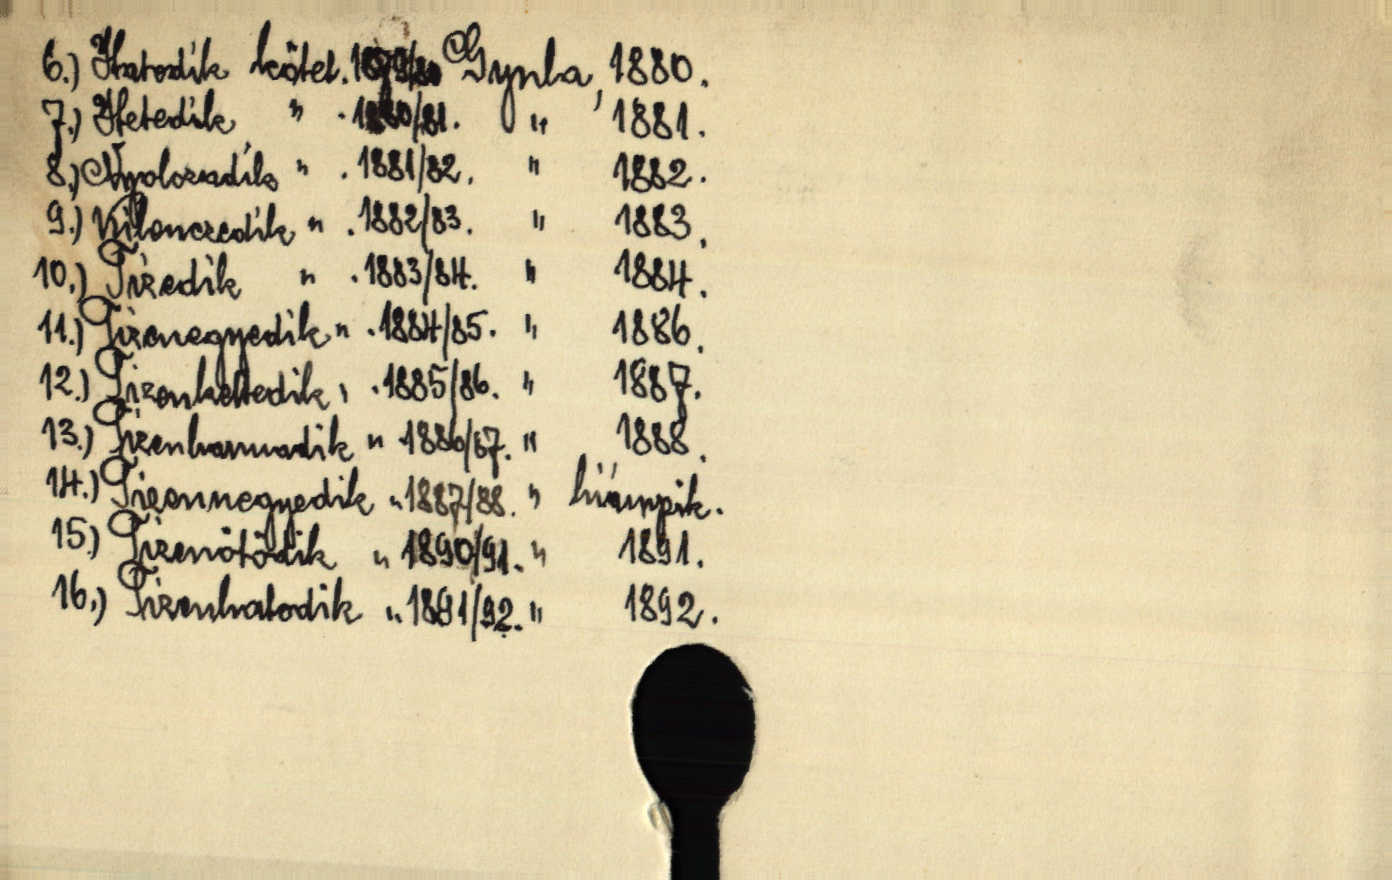 6.) Hatodik kötet. 1879/80 Gyula, 1880.
7.) Hetedik " . 1880/81. " 1881.
8.) Nyolczadik " . 1881/82. " 1882.
9.) Kilenczedik " . 1882/83. " 1883.
10.) Tizedik " . 1883/84. " 1884.
11.) Tizenegyedik " . 1884/85. " 1886.
12.) Tizenkettedik " . 1885/86. " 1887.
13.) Tizenharmadik " . 1886/87. " 1888.
14.) Tizennegyedik " 1887/88. " hiányzik.
15.) Tizenötödik " 1890/91. " 1891.
16.) Tizenhatodik " 1891/92. " 1892.